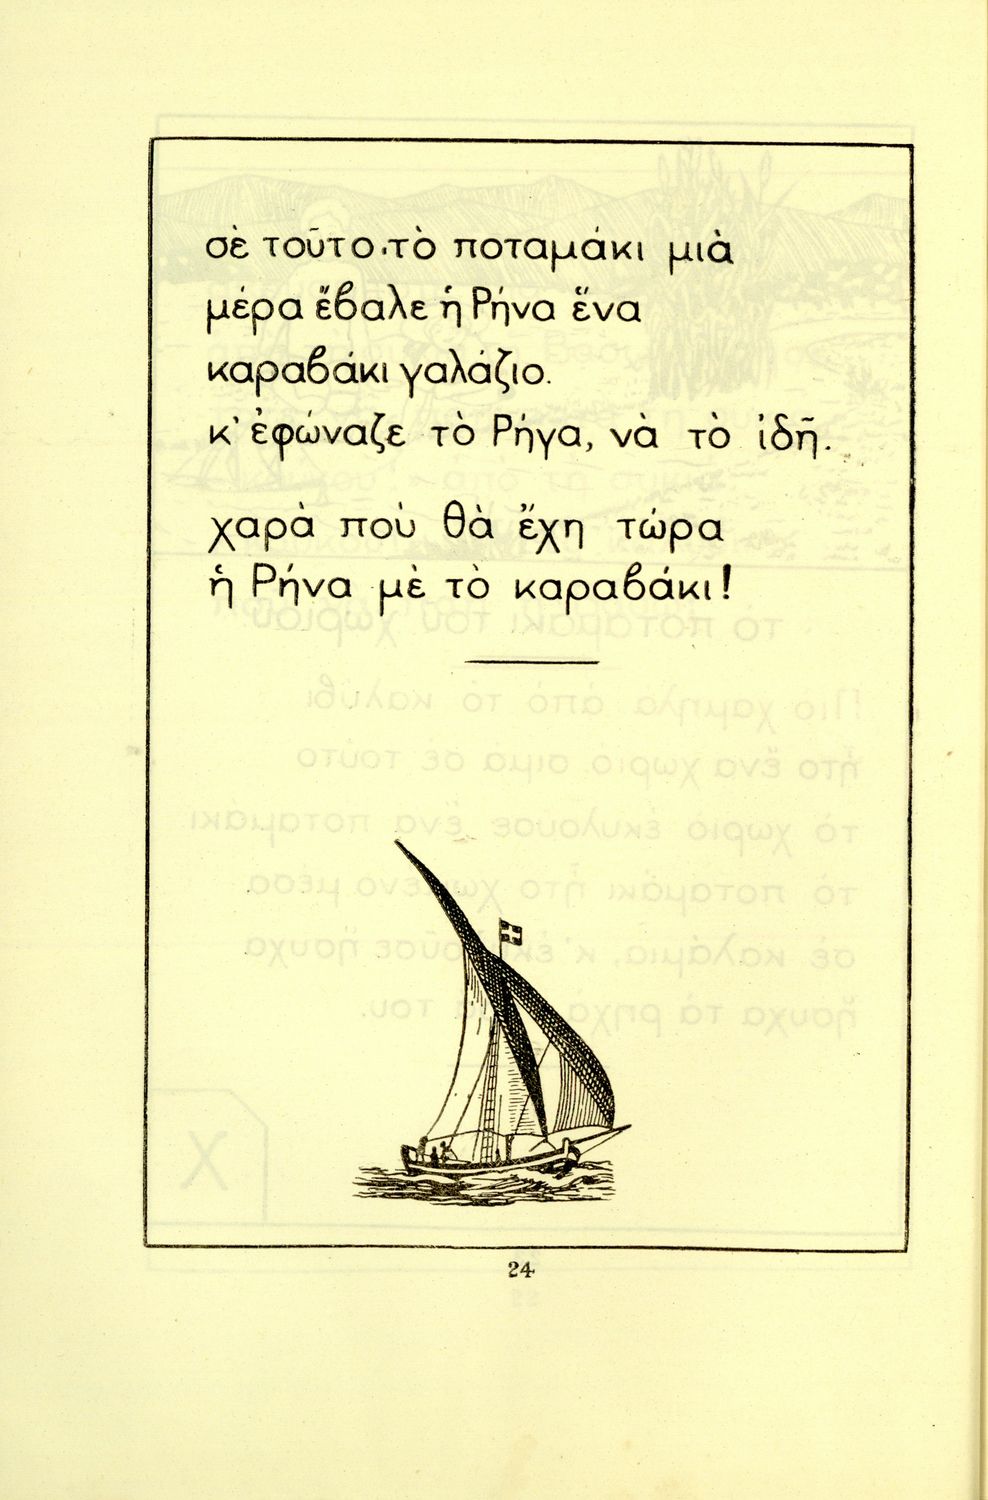 σὲ τοῦτο τὸ ποταμάκι μιὰ
μέρα ἔβαλε ἡ Ρήνα ἕνα
καραβάκι γαλάζιο.
κ' ἐφώναζε τὸ Ρήγα, νὰ τὸ ἰδῆ.
χαρὰ ποὺ θὰ ἔχη τώρα
ἡ Ρήνα μὲ τὸ καραβάκι!
24